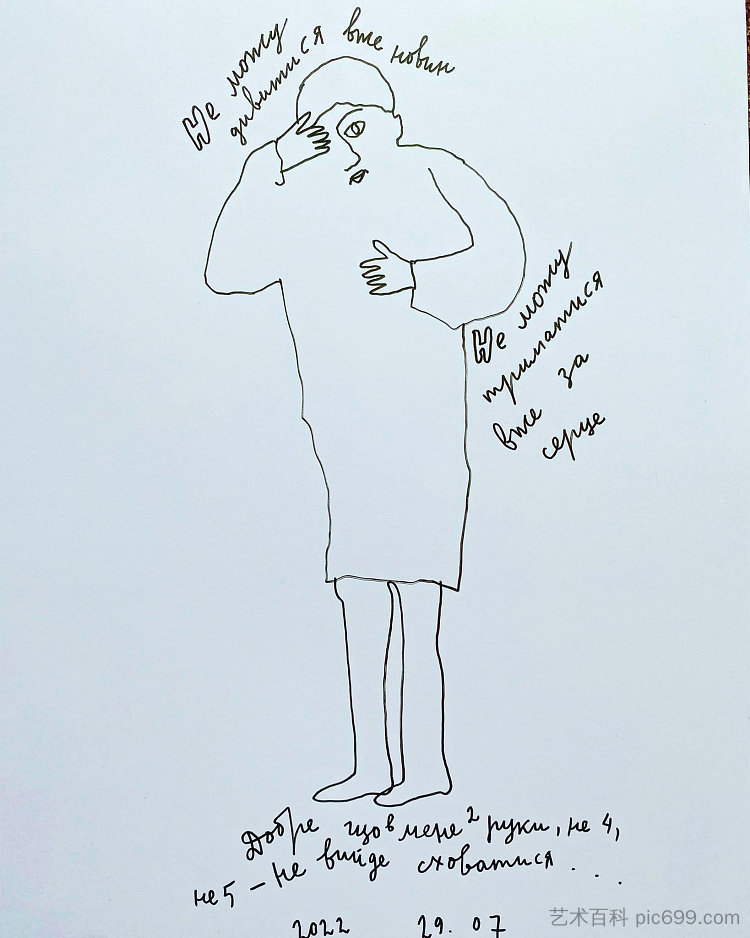 Не можу
дивитися вже новин
Не можу
триматися
вже за
серце
Добре що в мене 2 руки, не 4,
не 5 – не вийде сховатися . . .
2022 29. 07
艺术百科 pic699.com